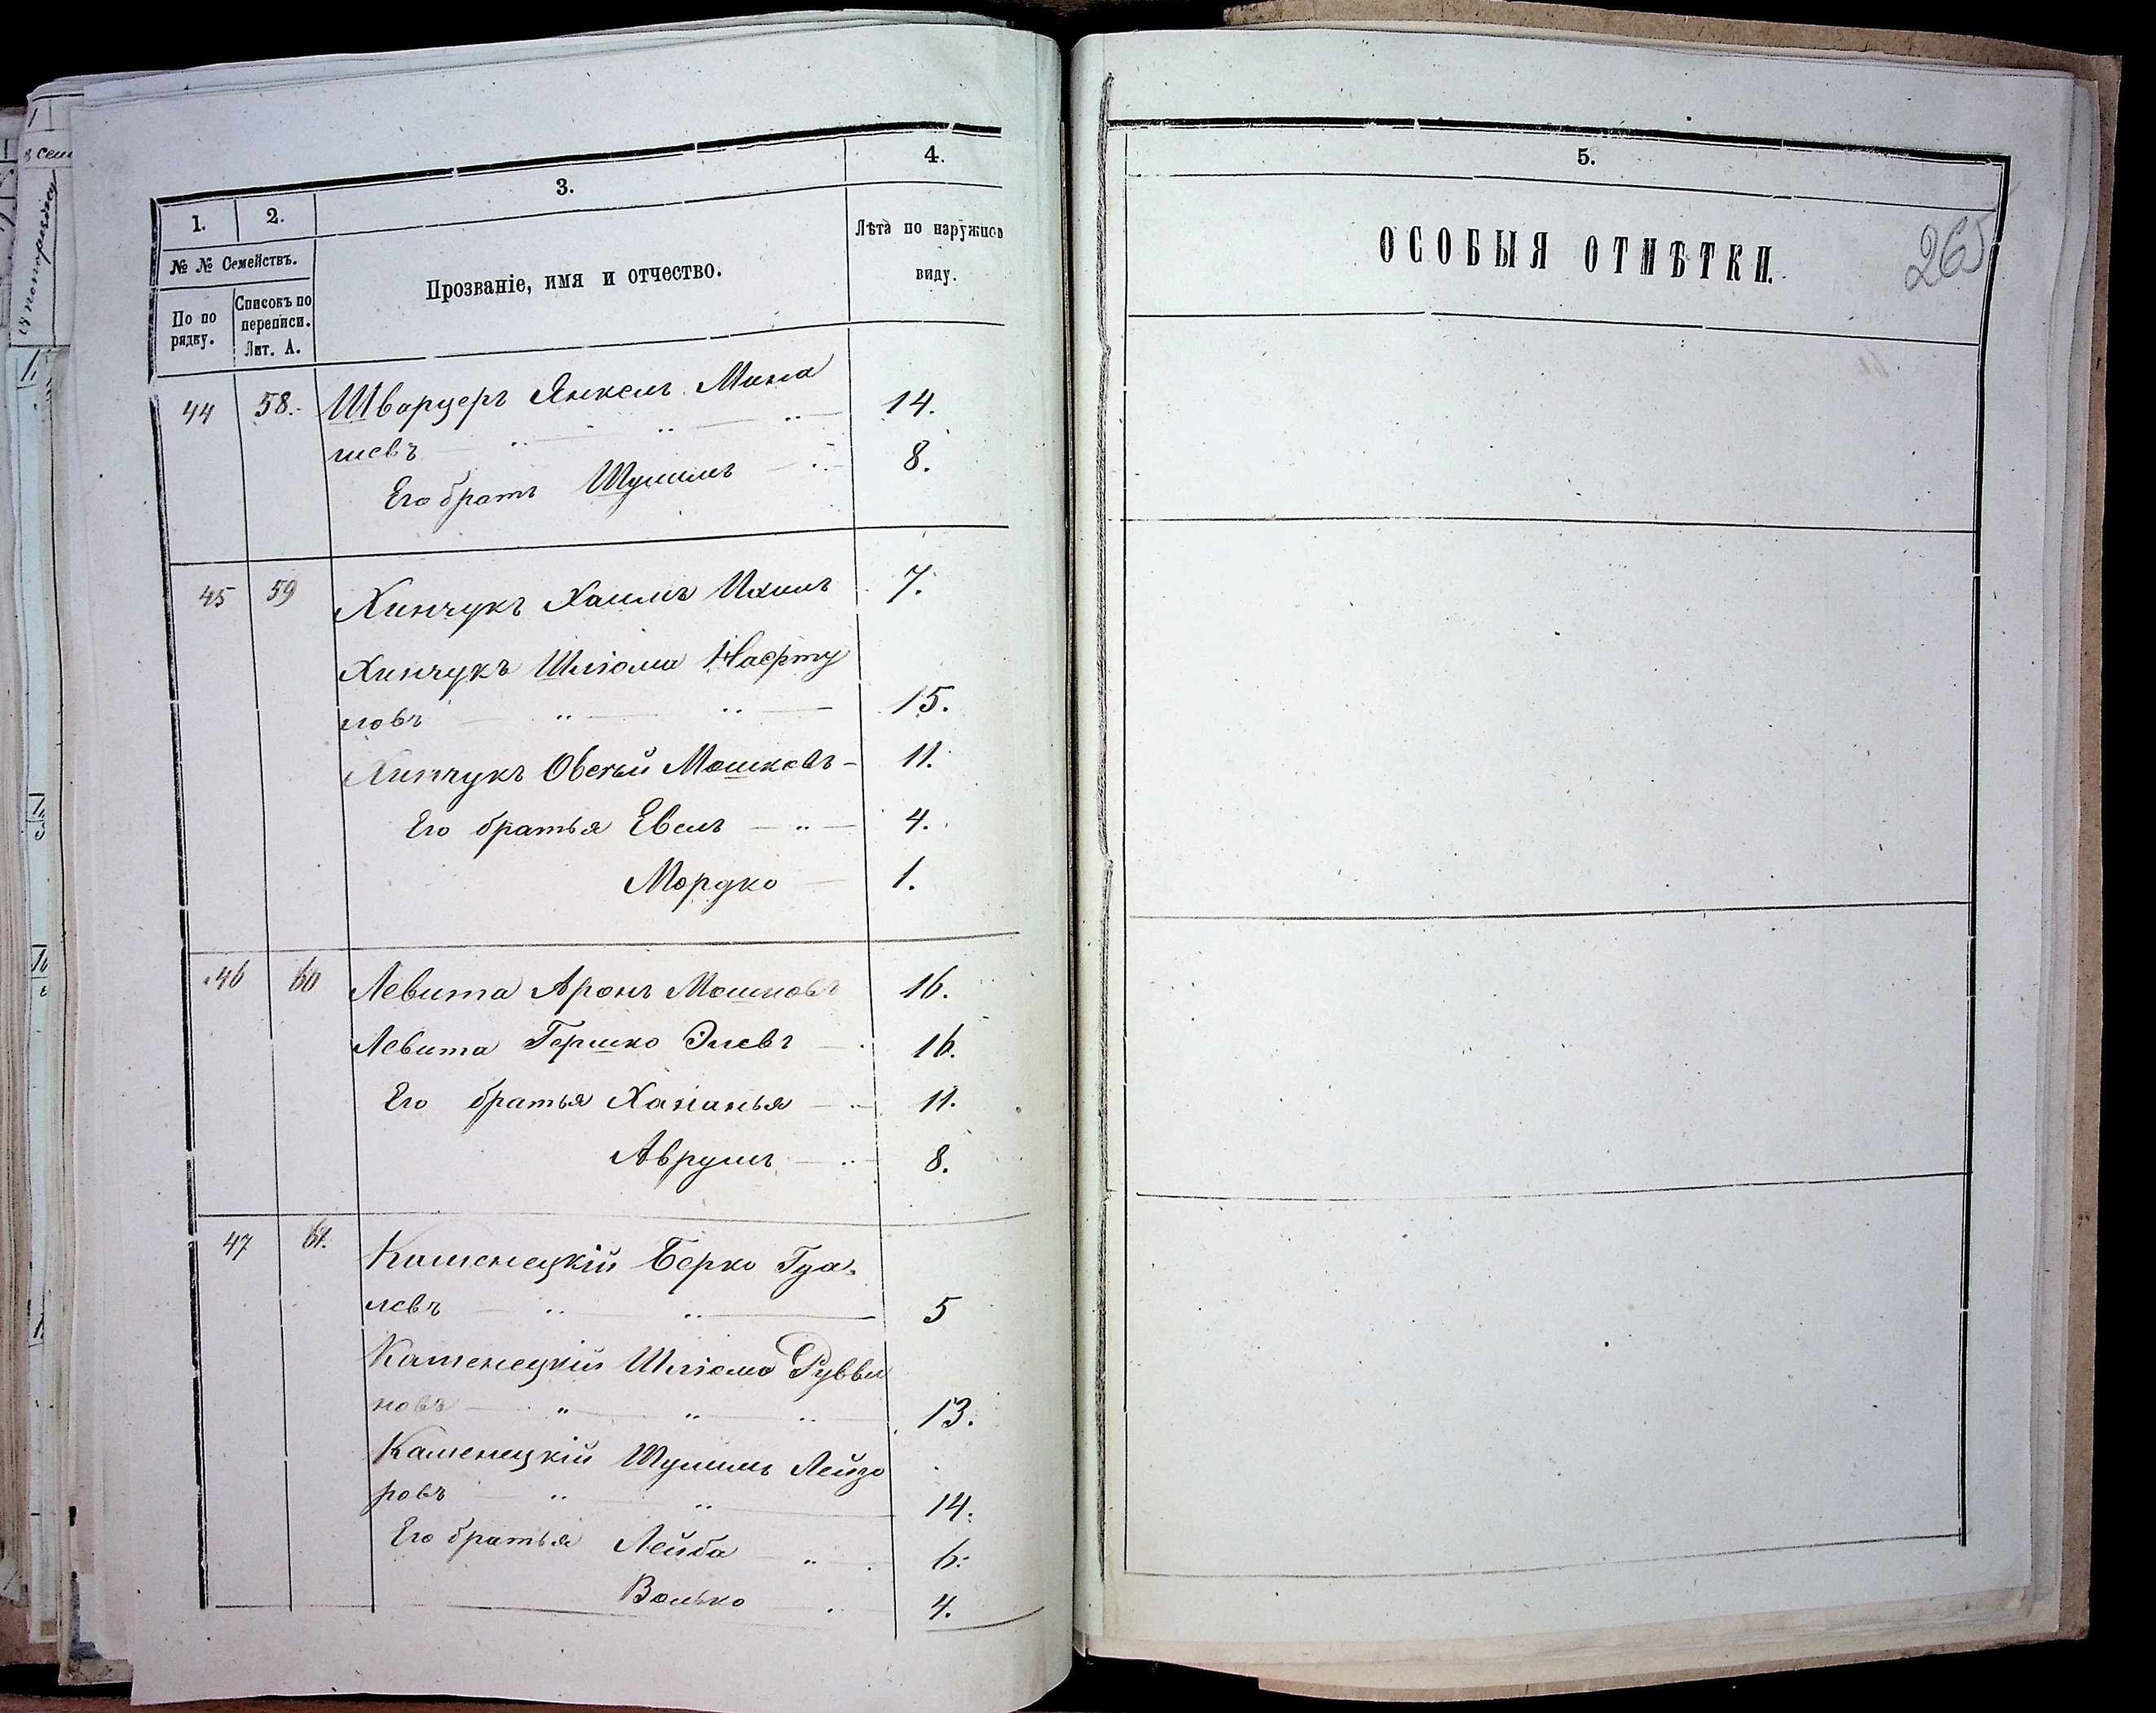 1.
2.
3.
4.
№ № Семействъ.
По по
рядку.
Списокъ по
переписи.
Лит. А.
Прозваніе, имя и отчество.
Лѣта по наружнов
виду.
44 58. Шварцеръ Янкель Мана 14.
шевъ
Его братъ Шулимъ 8.
45 59 Хинчукъ Хаимъ Ицкъ 7.
Хинчукъ Шлiома Нафту
ловъ 15.
Хинчукъ Овсѣй Мошковъ 11.
Его братья Евель 4.
Мордко 1.
46 60 Левита Аронъ Мошковъ 16.
Левита Гершко Элевъ 16.
Его братья Хананья 11.
Аврумъ 8.
47 61. Каменецкій Берко Гда-
левъ 5
Каменецкій Шлiома Рувви
новъ 13.
Каменецкій Шулимъ Лейзо
ровъ 14.
Его братья Лейба 6.
Волько 4.
5.
ОСОБЫЯ ОТМѢТКИ.
265